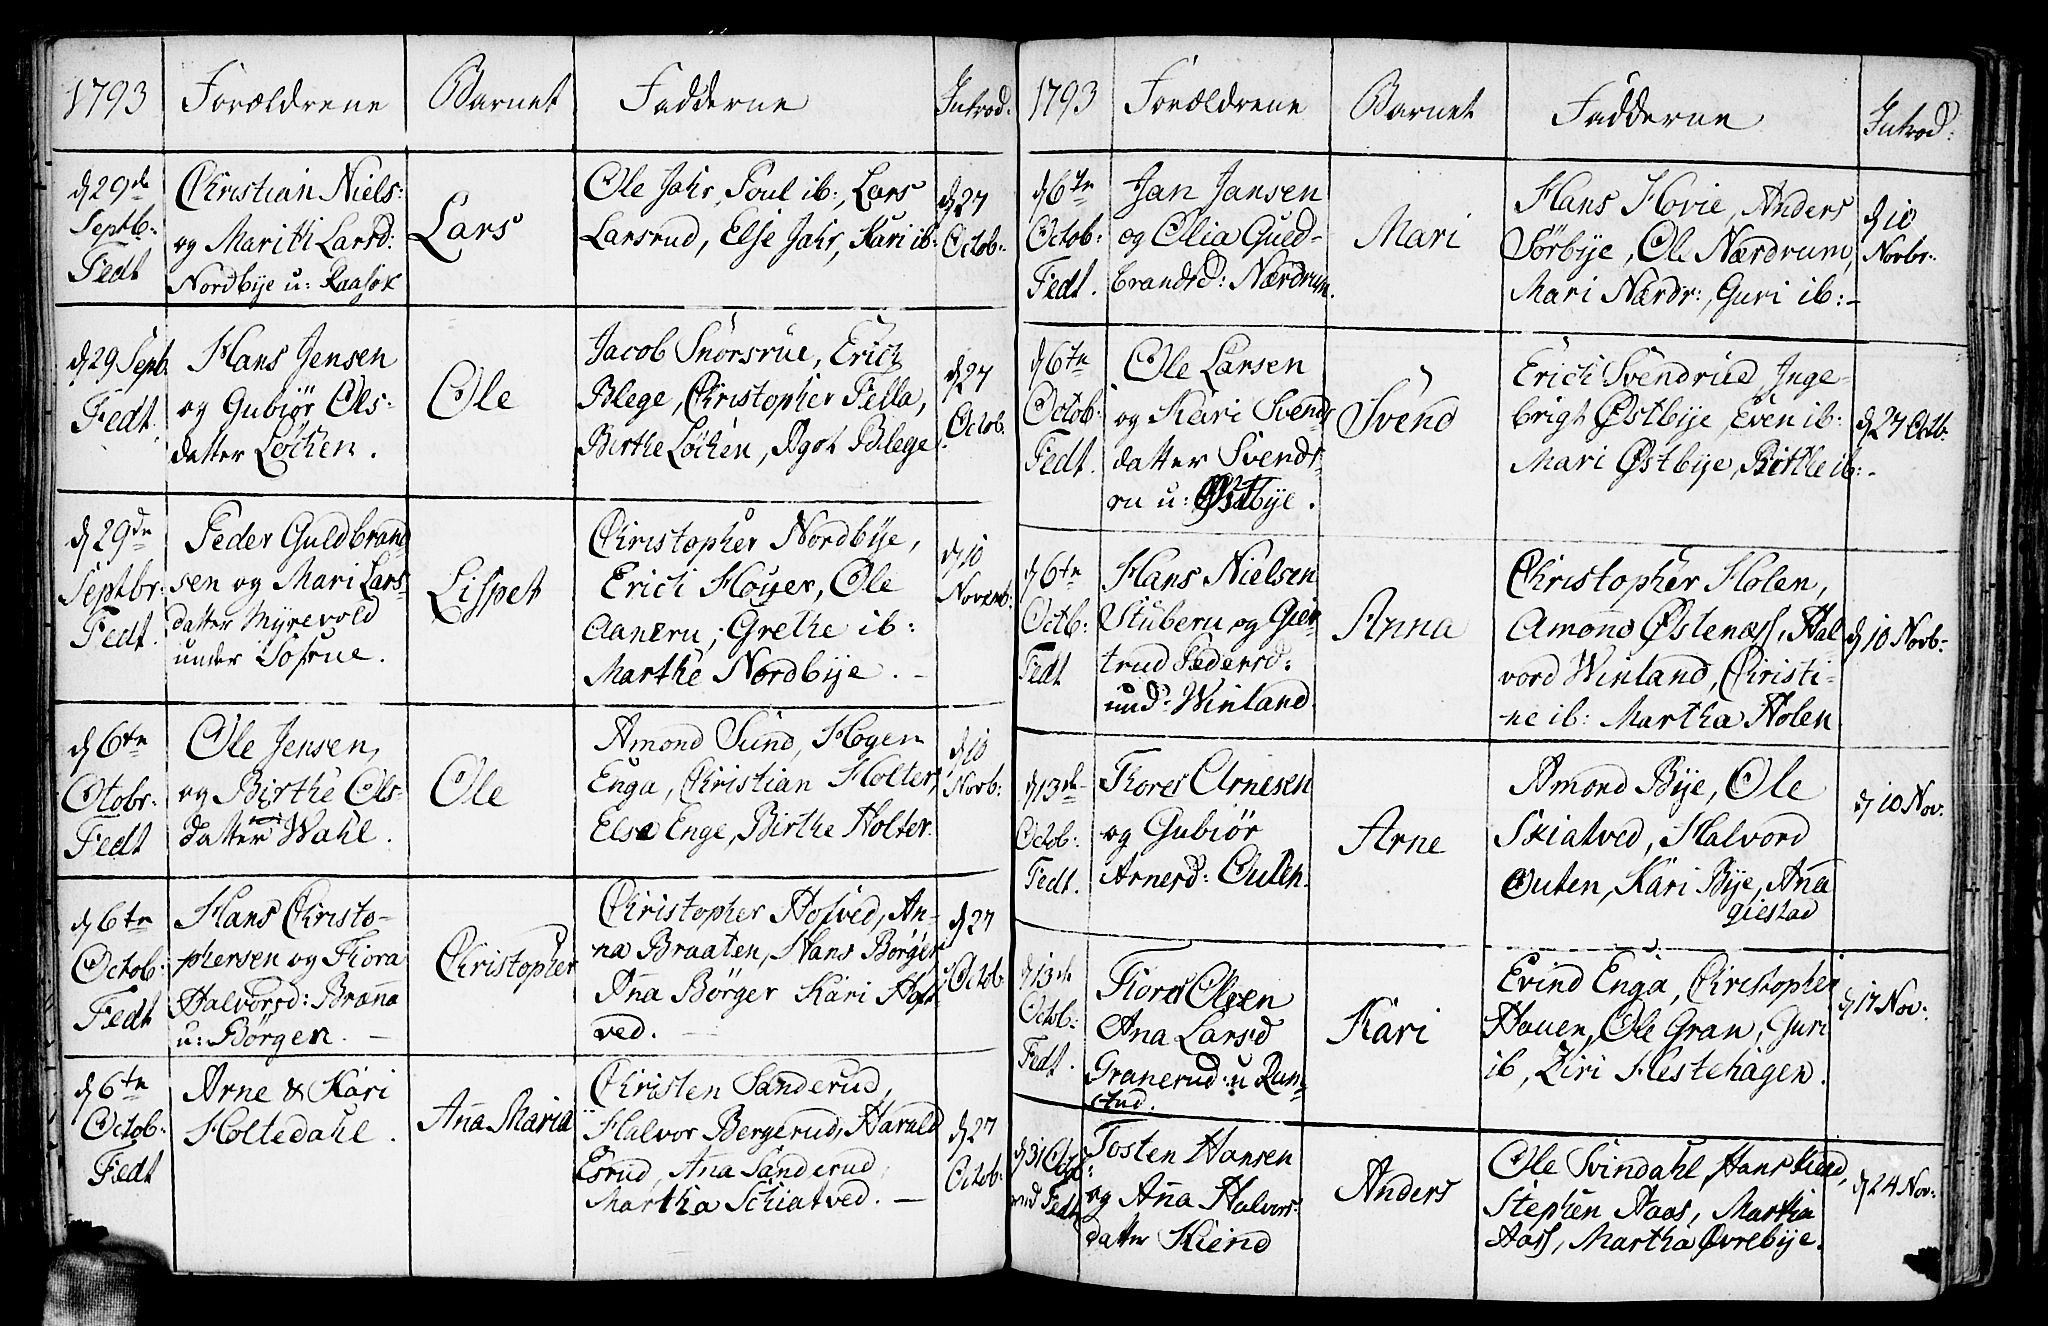 1793 Forældrene Barnet Fadderne Introd:
d 29de Septb: Fedt
Christian Niels:
og Marith Larsd:
Nordbÿe u: Raasok
Lars
Ole Jahr, Poul ib:, Lars
Larsrud, Else Jahr, Kari ib:
d 27 Octob:
d 29 Sept. Fedt.
Hans Jensen
og Gubiør Ols-
datter Løchen.
Ole
Jacob Snorsrue, Erich
Blege, Christopher Pella,
Birthe Løchen, Agot Blege.
d 27 Octob.
d 29de Septbr: Fedt.
Peder Guldbrand
sen og Mari Lars-
datter Myrevold
under Tosrue.
Lispet
Christopher Nordbÿe,
Erich Høyer, Ole
Aaneru, Grethe ib:
Marthe Nordbÿe. -
d 10 Novemb:
d 6te Otobr: Fedt
Ole Jensen,
og Birthe Ols-
datter Wahl.
Ole
Amond Sund, Hogen
Enga, Christian Holter,
Else Enge, Birthe Holter.
d 10 Novb:
d 6te Octob: Fedt
Hans Christo-
phersen og Kiora
Halvorsd: Bræna
u: Børgen. -
Christopher
Christopher Hofved, An-
na Braaten, Hans Børger
Ana Børger Kari Hof-
ved. -
d 27 Octob
d 6te Octob: Fedt
Arne & Kari
Holtedahl.
Ana Maria
Christen Sanderud,
Halvor Bergerud, Harald
Esrud, Ana Sanderud,
Martha Schiatved. -
d 27 Octob:
1793 Forældrene Barnet Fadderne Introd:
d 6te Octob: Fedt.
Jan Jansen
og Olia Guld-
brandsd: Nærdrum.
Mari
Hans Hovie, Anders
Sørbÿe, Ole Nærdrum,
Mari Nærdr:, Guri ib: -
d 10 Novbr:
d 6te Octob: Fedt.
Ole Larsen
og Kari Svends
datter Svends-
ru u: Østbÿe.
Svend
Erich Svendrud, Inge-
brigt Østbÿe, Even ib:
Mari Østbÿe, Birthe ib: -
d 27 Octb:
d 6te Octb: Fedt
Hans Nielsen
Stuberu og Gier-
trud Pedersd:
und: Winland
Anna
Christopher Holen,
Amond Østenæss, Hal
vord Winland, Christi-
ne ib: Martha Holen
d 10 Novb:
d 13de Octob: Fedt.
Thores Arnesen
og Gubiør
Arnesd: Outen.
Arne
Amond Bÿe, Ole
Skiatved, Halvord
Outen, Kari Bÿe, Ana
giestad
d 10 Nov:
d 13de Octob: Fedt.
Thores Olsen
Ana Larsd
Granerud: u Run-
stad.
Kari
Evind Enga, Christopher
Hauen, Ole Gran, Guri
ib, Ziri Hestehagen.
d 17 Nov:
d 31 Fedt
Tosten Hansen
og Ana Halvors-
datter Kiend
Anders
Ole Svindahl, Hans Kiend,
Stephen Aaas, Martia
Aass, Martha Øvrebÿe.
d 24 Nov: